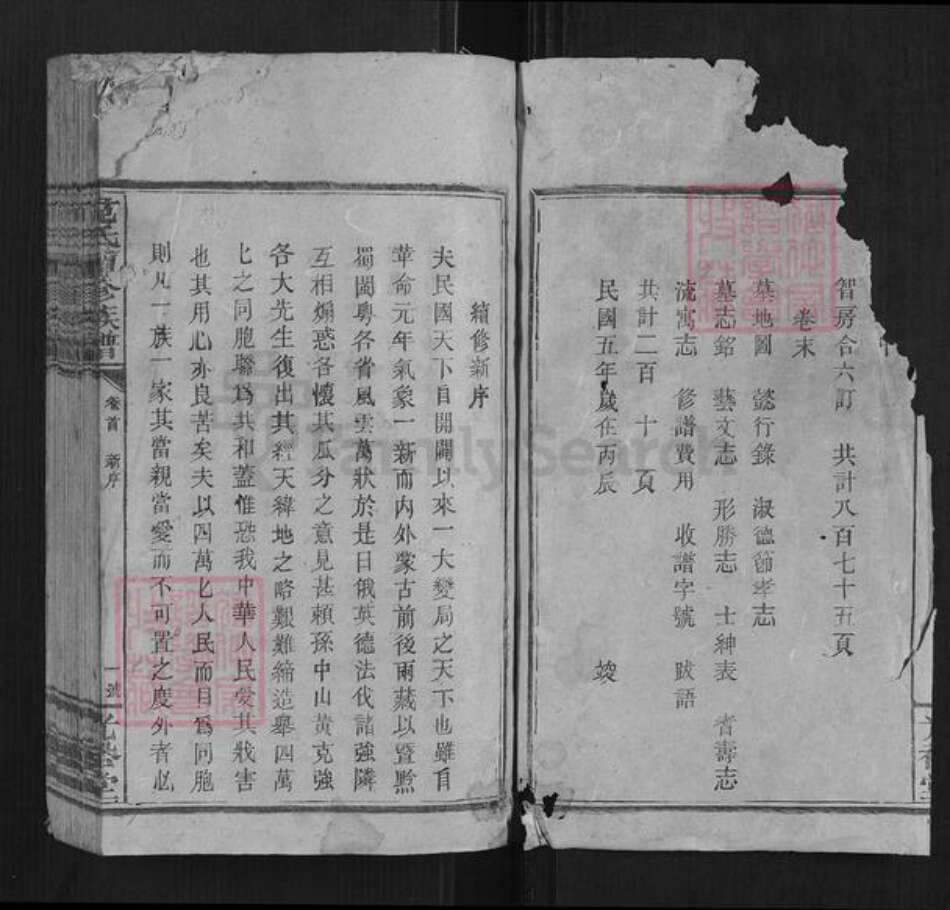 智房合六訂　共計八百七十五頁
卷末
墓地圖　懿行錄　淑德節孝志
墓志銘　藝文志　形勝志　士紳表　耆壽志
流寓志　修譜費用　收譜字號　跋語
共計二百　十　頁
民國五年歲在丙辰　　竣
續修新序
夫民國天下自開闢以來一大變局之天下也雖自
革命元年氣象一新而內外蒙古前後兩藏以暨黔
蜀閩粵各省風雲萬狀於是日俄英德法伐諸強隣
互相煽惑各懷其瓜分之意見甚賴孫中山黃克強
各大先生復出其經天緯地之略艱難締造舉四萬
七之同胞聯爲共和蓋惟恐我中華人民受其戕害
也其用心亦良苦矣夫以四萬七人民而目爲同胞
則凡一族一家其當親當愛而不可置之度外者必
范氏續修族譜
卷首　新序
一號
FamilySearch